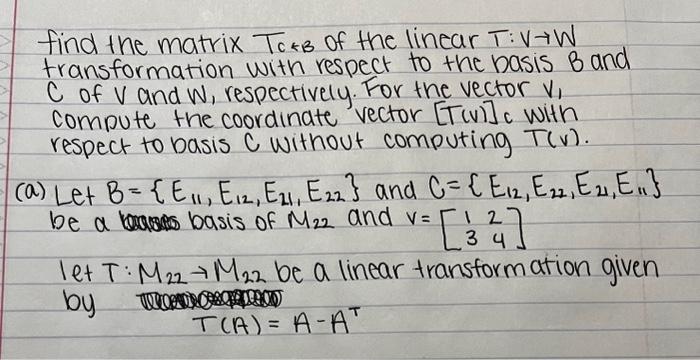 find the matrix T_{C←B} of the linear T:V→W
transformation with respect to the basis B and
C of V and W, respectively. For the vector v,
compute the coordinate vector [T(v)]_C with
respect to basis C without computing T(v).
(a) Let B = {E₁₁, E₁₂, E₂₁, E₂₂} and C = {E₁₂, E₂₂, E₂₁, E₁₁}
be a basis of M₂₂ and v = [1 2
3 4]
let T: M₂₂ → M₂₂ be a linear transformation given
by
T(A) = A - Aᵀ